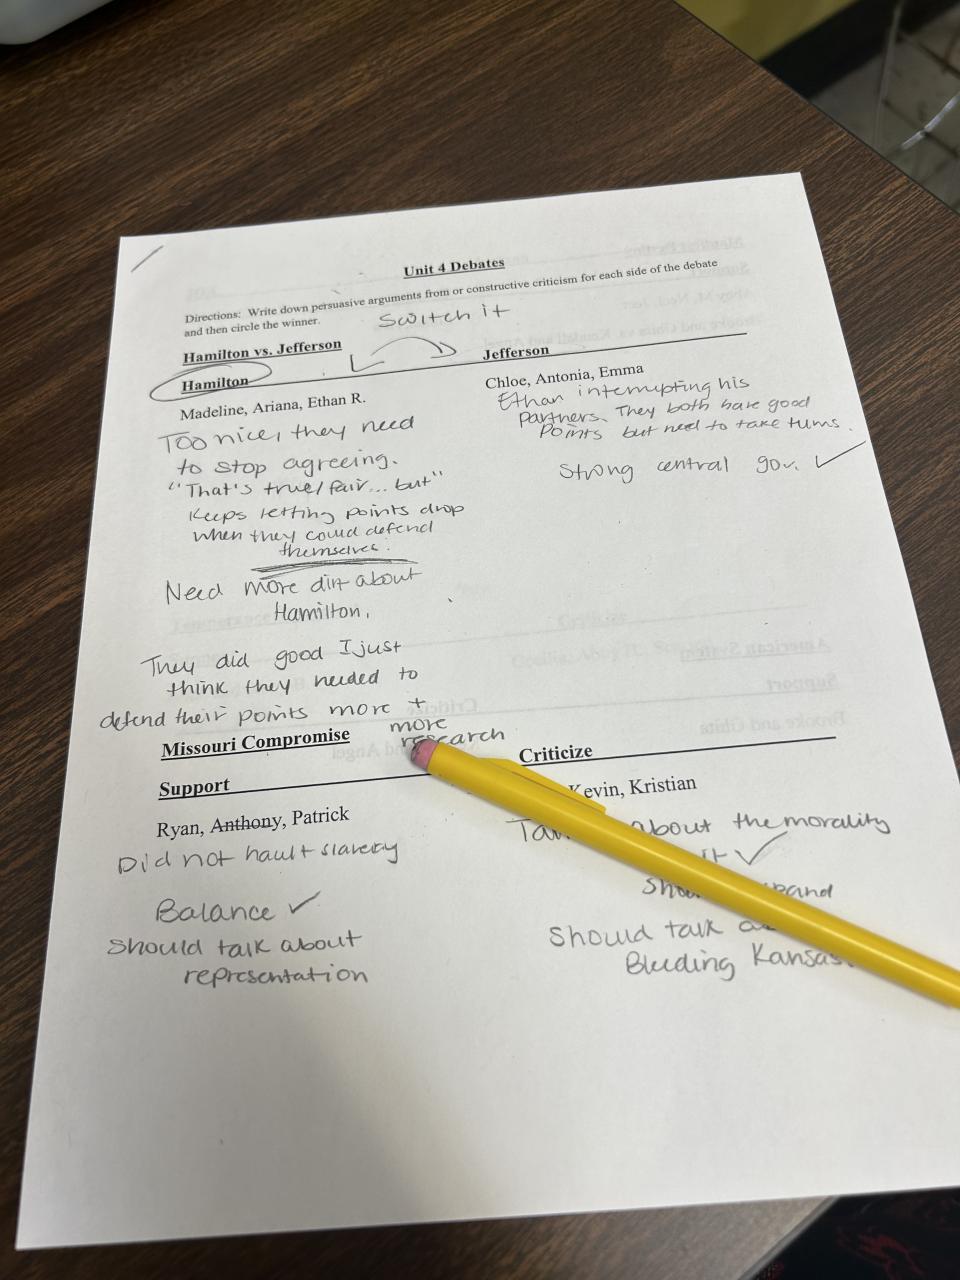 Unit 4 Debates
Directions: Write down persuasive arguments from or constructive criticism for each side of the debate
and then circle the winner.
Switch it
Hamilton vs. Jefferson
Hamilton
Madeline, Ariana, Ethan R.
Too nice, they need
to stop agreeing.
"That's true/fair... but"
Keeps letting points drop
when they could defend
themselves.
Need more dirt about
Hamilton.
They did good I just
think they needed to
defend their points more +
more
research
Jefferson
Chloe, Antonia, Emma
Ethan interrupting his
partners. They both have good
Points but need to take turns.
Strong central gov. ✓
Missouri Compromise
Support
Ryan, Anthony, Patrick
Did not hault slavery
Balance ✓
Should talk about
representation
Criticize
Kevin, Kristian
about the morality
it ✓
Should talk
Bleeding Kansas